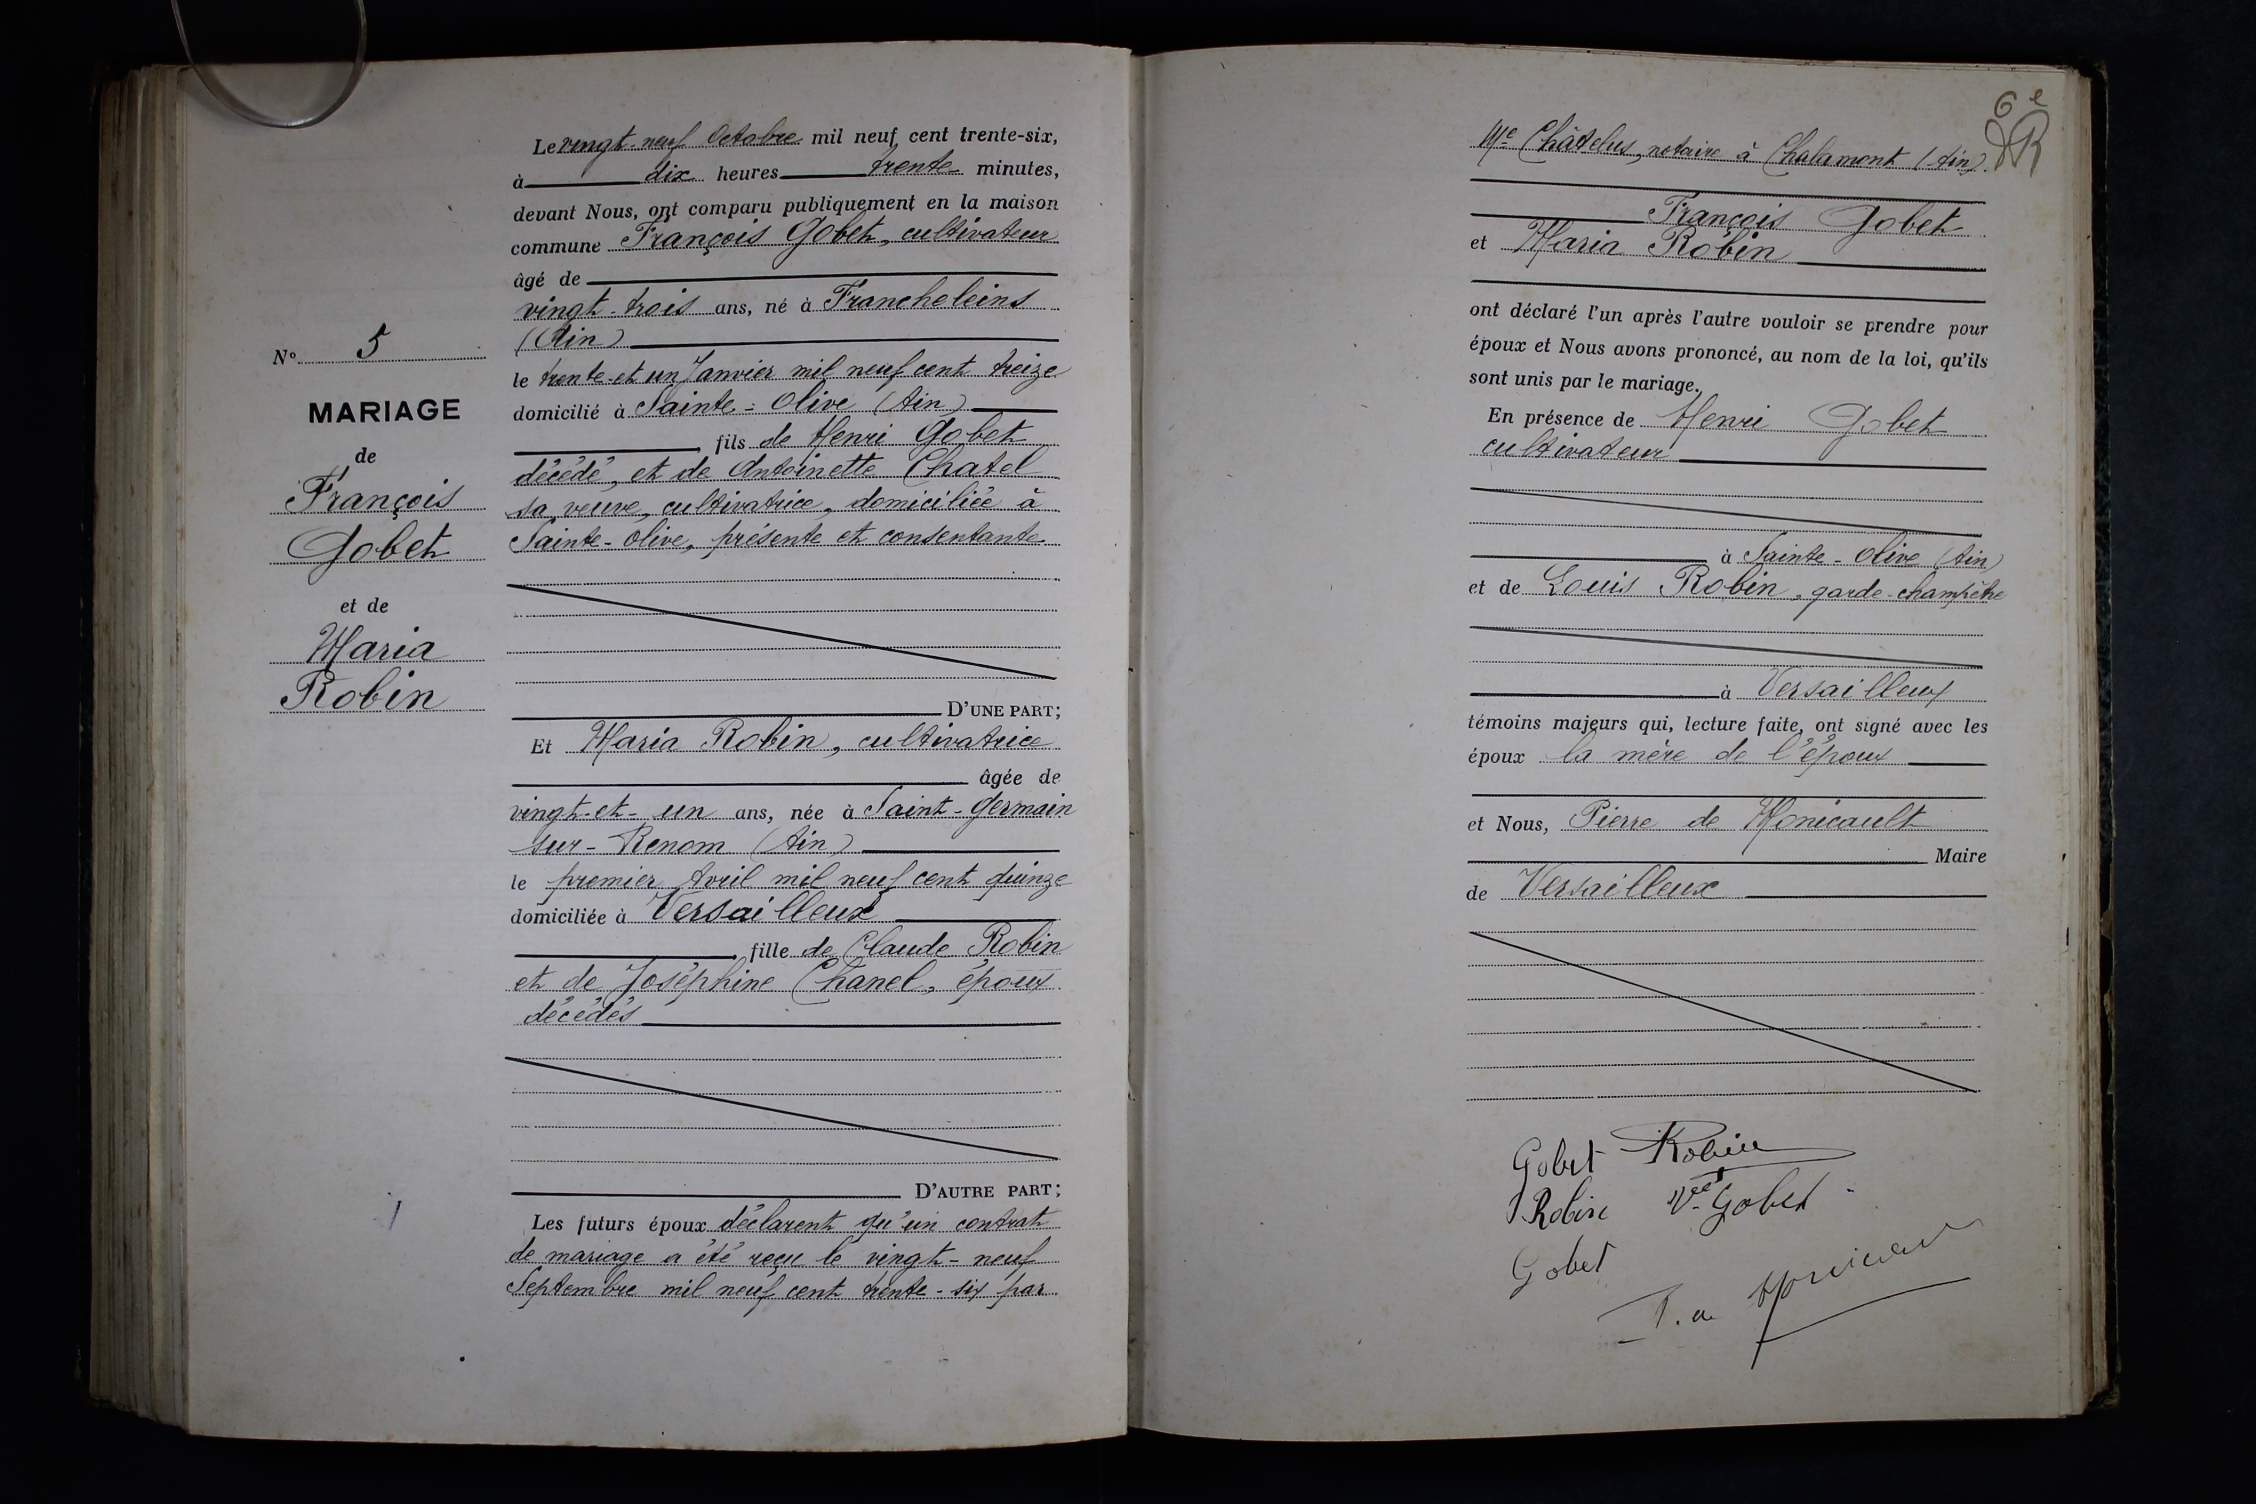 N° 5
MARIAGE
de
François
Gobet
et de
Maria
Robin
Le vingt-neuf Octobre mil neuf cent trente-six,
à dix heures trente minutes,
devant Nous, ont comparu publiquement en la maison
commune François Gobet, cultivateur
âgé de
vingt-trois ans, né à Francheleins
(Ain)
le trente-et-un Janvier mil neuf cent treize
domicilié à Sainte-Olive (Ain)
fils de Henri Gobet
décédé, et de Antoinette Chatel
sa veuve, cultivatrice, domiciliée à
Sainte-Olive, présente et consentante
D'UNE PART;
Et Maria Robin, cultivatrice
âgée de
vingt-et-un ans, née à Saint-Germain
sur-Renom (Ain)
le premier Avril mil neuf cent quinze
domiciliée à Versailleux
fille de Claude Robin
et de Joséphine Chanel, époux
décédés
D'AUTRE PART;
Les futurs époux déclarent qu'un contrat
de mariage a été reçu le vingt-neuf
Septembre mil neuf cent trente-six par
6e
Me Châtelus, notaire à Chalamont (Ain).
François Gobet
et Maria Robin
ont déclaré l'un après l'autre vouloir se prendre pour
époux et Nous avons prononcé, au nom de la loi, qu'ils
sont unis par le mariage.
En présence de Henri Gobet
cultivateur
à Sainte-Olive (Ain)
et de Louis Robin, garde-champêtre
à Versailleux
témoins majeurs qui, lecture faite, ont signé avec les
époux la mère de l'époux
et Nous, Pierre de Monicault
Maire
de Versailleux
Gobet Robin
Robin Vve Gobet
Gobet
P. de Monicault